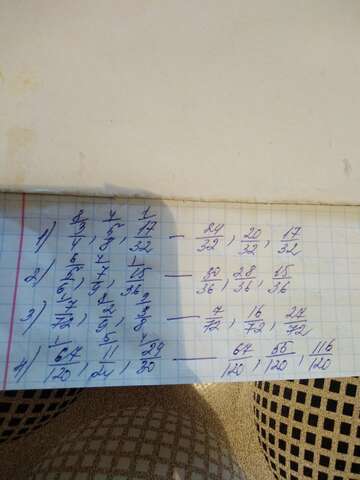 8 4 1
1) 3/4, 5/8, 17/32 — 24/32, 20/32, 17/32
6 4 1
2) 5/6, 7/9, 15/36 — 30/36, 28/36, 15/36
1 8 9
3) 7/72, 2/9, 3/8 — 7/72, 16/72, 27/72
1 5 4
4) 67/120, 11/24, 29/30 — 67/120, 55/120, 116/120